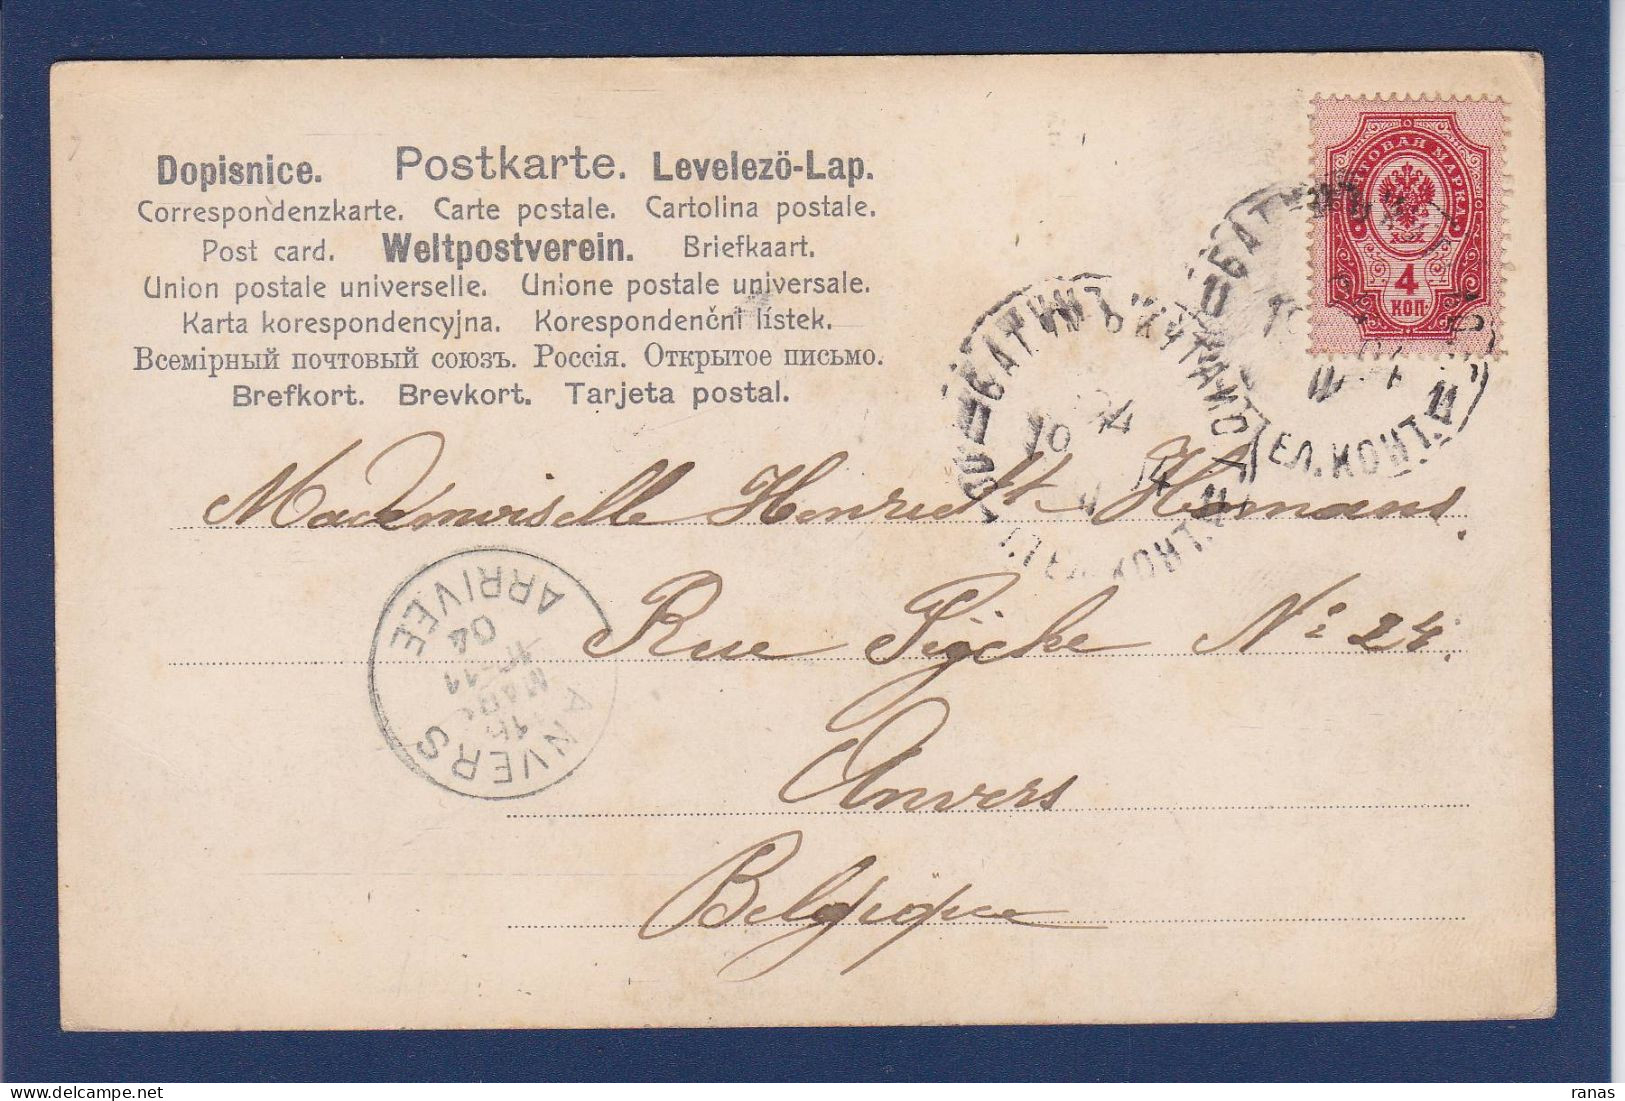 Dopisnice. Postkarte. Levelezö-Lap.
Correspondenzkarte. Carte postale. Cartolina postale.
Post card. Weltpostverein. Briefkaart.
Union postale universelle. Unione postale universale.
Karta korespondencyjna. Korespondenční lístek.
Всемірный почтовый союзъ. Россія. Открытое письмо.
Brefkort. Brevkort. Tarjeta postal.
ПОЧТОВАЯ МАРКА
4
КОП
БАТУМЪ
ТЕЛ. КОНТ.
11
БАТУМЪ КУТАИС
10
04
11
Mademoiselle
Rue No 24.
Anvers
Belgique
ANVERS
ARRIVEE
04